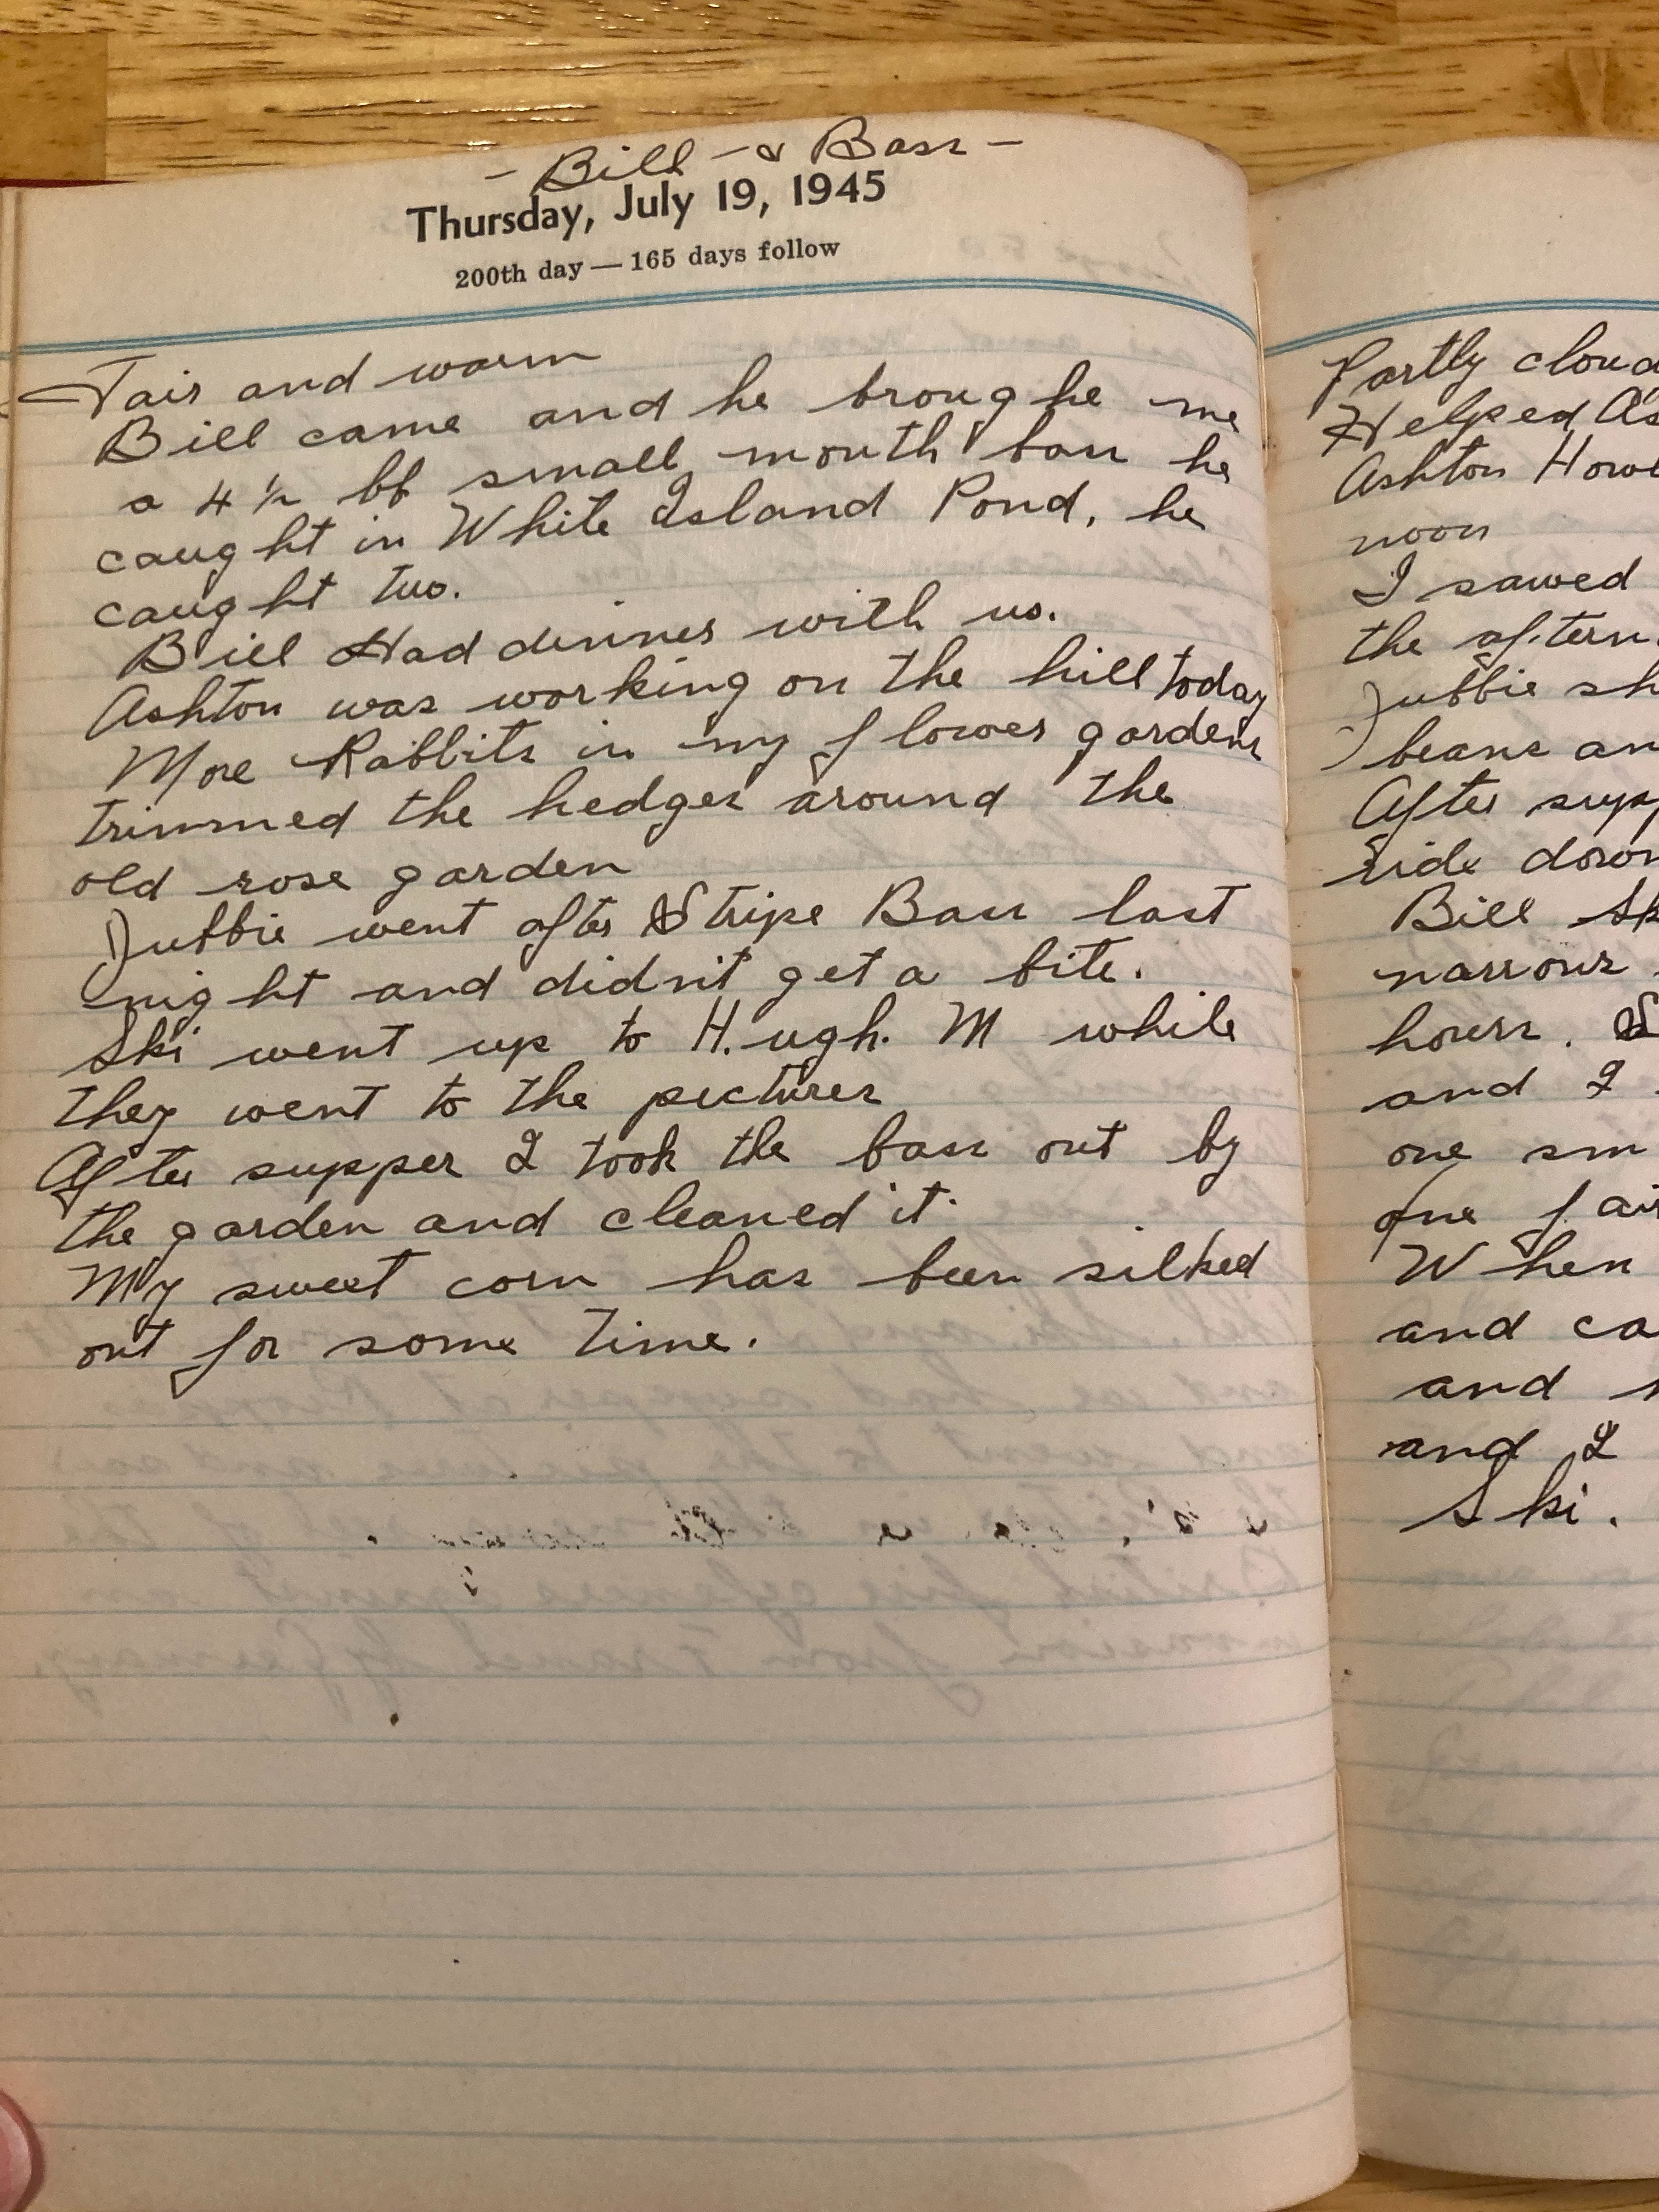 - Bill - & Bass -
Thursday, July 19, 1945
200th day — 165 days follow
Fair and warm
Bill came and he broughe me
a 4 ½ lb small mouth bass he
caught in White Island Pond, he
caught two.
Bill Had dinner with us.
Ashton was working on the hill today
More Rabbits in my flower gardens
trimmed the hedges around the
old rose garden
Jubbie went after Stripe Bass last
night and didn't get a bite.
Ski went up to H.ugh. M while
they went to the pictures
After supper I took the bass out by
the garden and cleaned it.
My sweet corn has been silked
out for some time.
Partly cloud
Helped As
Ashton Howl
noon
I sawed
the aftern
Jubbie sh
beans an
After supp
ride down
Bill Sk
narrows
hours. S
and I
one sm
one fair
When
and ca
and
and I
Ski.